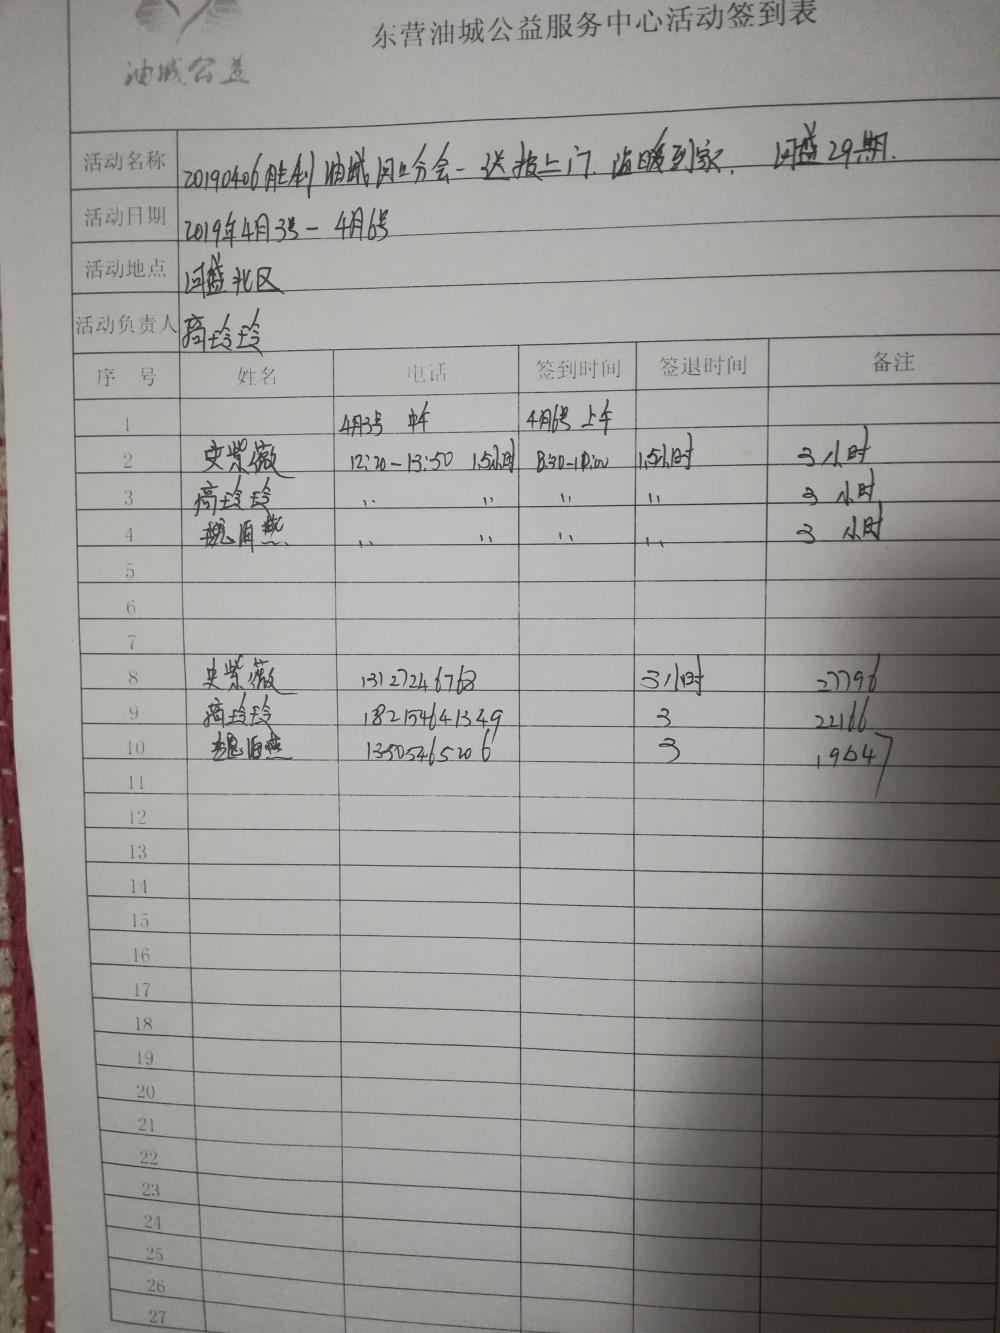 东营油城公益服务中心活动签到表
油城公益
活动名称 20190406胜利油城河口分会-送报上门.温暖到家. 河盛29期.
活动日期 2019年4月3号-4月6号
活动地点 河盛北区
活动负责人 商玲玲
序 号 姓名 电话 签到时间 签退时间 备注
1 4月3号 中午 4月6号 上午
2 史紫薇 12:20-13:50 1.5小时 8:30-10:00 1.5小时 3小时
3 商玲玲 〃 〃 〃 〃 3小时
4 魏海燕 〃 〃 〃 〃 3小时
5
6
7
8 史紫薇 13127246768 3小时 27796
9 商玲玲 182154641349 3 22166
10 魏海燕 3
11
12
13
14
15
16
17
18
19
20
21
22
23
24
25
26
27